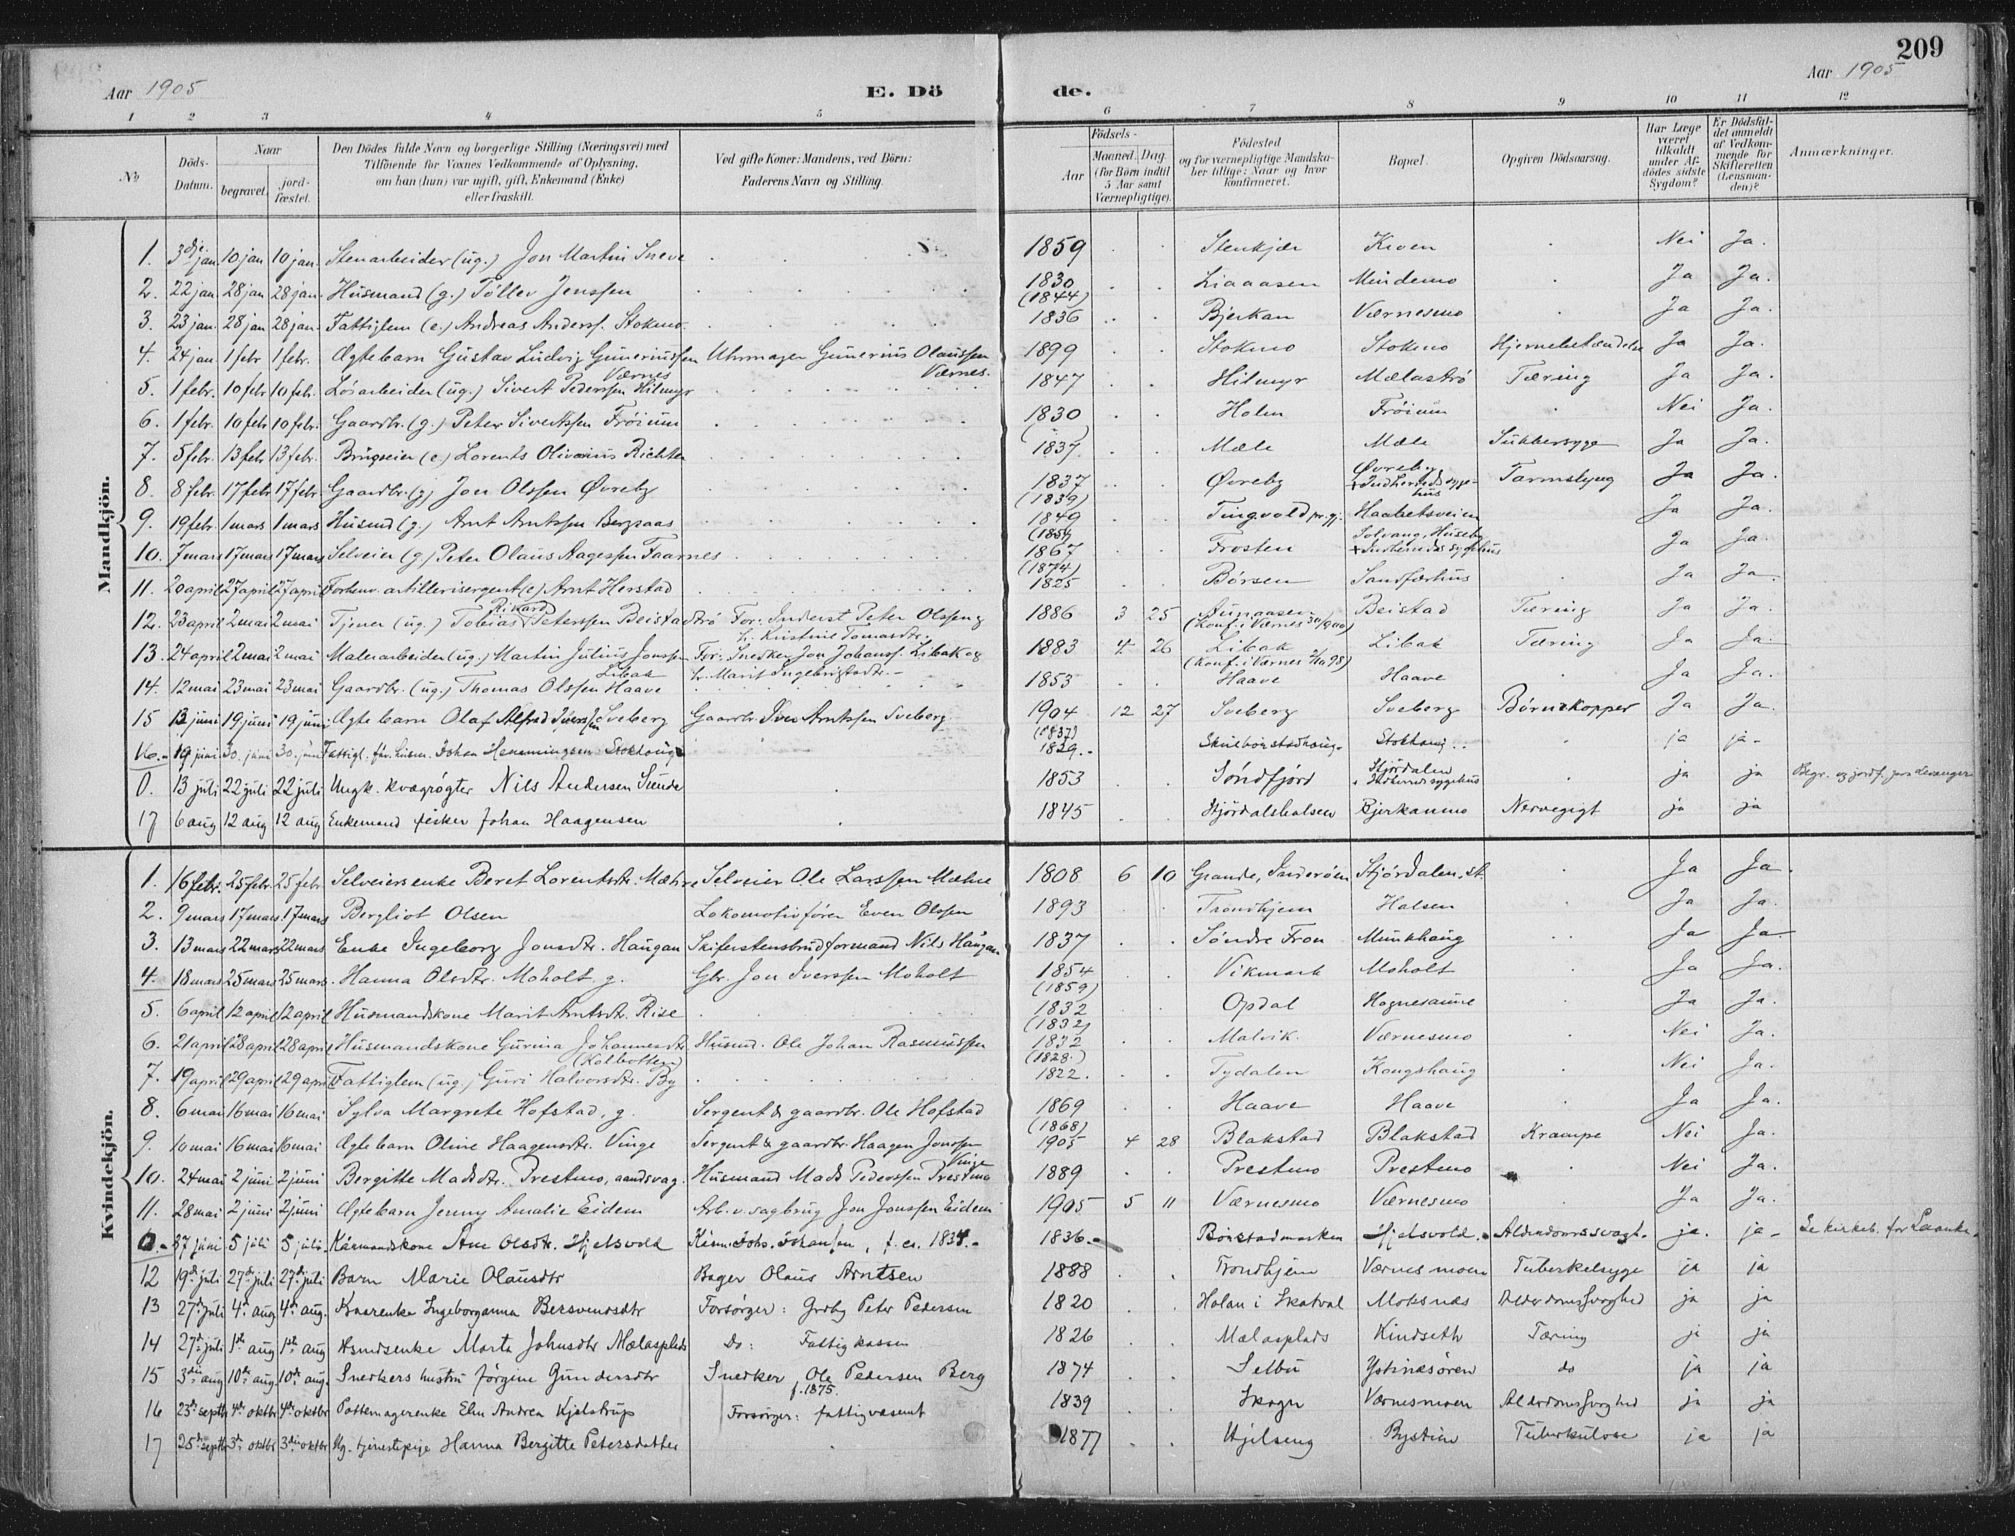 209
Aar 1905
E. Döde.
Aar 1905
1 2 3 4 5 6 7 8 9 10 11 12
No
Döds-Datum.
Naar begravet. jordfæstet.
Den Dödes fulde Navn og borgerlige Stilling (Næringsvei) med Tilföiende for Voxnes Vedkommende af Oplysning, om han (hun) var ugift, gift, Enkemand (Enke) eller fraskilt.
Ved gifte Koner: Mandens, ved Börn: Faderens Navn og Stilling.
Födsels-
Aar
Maaned. Dag.
(for Börn indtil 5 Aar samt Værnepligtige).
Födested og for værnepligtige Mandskaber tillige: Naar og hvor konfirmeret.
Bopæl.
Opgiven Dödsaarsag.
Har Læge været tilkaldt under Afdödes sidste Sygdom?
Er Dödsfaldet anmeldt af Vedkommende for Skifteretten (Lensmanden)?
Anmærkninger.
Mandkjön.
1. 3dje jan. 10 jan 10 jan. Stenarbeider (ug.) Jon Martin Sneve 1859 Stenkjær Kroen Nei Ja.
2. 22 jan. 28 jan 28 jan. Husmand (g.) Töllev Jenssen 1830 (1844) Liaaasen Mindemo Ja Ja.
3. 23 jan. 28 jan 28 jan. Fattiglem (e.) Andreas Anderss. Stokmo. 1836 Bjerkan Værnesmo Ja Ja.
4. 24 jan. 1 febr 1 febr. Ægtebarn Gustav Ludvig Guneriussen Værnes Uhrmager Gunerius Olaussen Værnes. 1899 Stokmo Stokmo Hjernebetændelse Ja Ja.
5. 1 febr. 10 febr 10 febr. Lösarbeider (ug.) Sivert Pederssen Hilmyr 1847 Hilmyr Mælaströ Tæring Ja Ja.
6. 1 febr. 10 febr 10 febr. Gaardbr. (g.) Peter Sivertssen Fröium 1830 Holen Fröium Nei Ja.
7. 5 febr. 13 febr 13 febr. Brugseier (e.) Lorents Olivarius Richter 1837 Mæle Mæle Sukkersyge Ja Ja.
8. 8 febr. 17 febr 17 febr. Gaardbr. (g) Jon Olssen Øvreby 1837 (1839) Øvreby Øvreby + Indherreds sygehus Tarmslyng Ja Ja.
9. 19 febr. 1 mars 1 mars Husmd (g.) Arnt Arntssen Bergsaas 1849 (1859) Tingvold pr.gj. Haabetsveien Ja Ja.
10. 7 mars 17 mars 17 mars Selveier (g.) Peter Olaus Aagessen Faarnes 1867 (1874) Frosten Solvang, Huseby + Indherreds sygehus Ja Ja.
11. 20 april 27 april 27 april Forhenv. artillerisergent (e.) Arnt Herstad 1825 Börsen Sandfærhus Ja Ja.
12. 23 april 2 mai 2 mai Tjener (ug.) Tobias Rikard Peterssen Beistadströ For.: Inderst Peter Olssen og h. Kristine Tomasdtr. 1886 3 25 Aunaasen (Konf. i Værnes 30/9 00) Beistad Tæring Ja Ja.
13. 24 april 2 mai 2 mai Malerarbeider (ug.) Martin Julius Jonssen Libak For: Snedker Jon Johanss. Libak og h. Marit Ingebrigtsdtr. 1883 4 26 Libak (Konf. i Værnes 2/10 98) Libak Tæring Ja Ja.
14. 12 mai 23 mai 23 mai Gaardbr. (ug.) Thomas Olssen Haave 1853 Haave Haave Ja Ja.
15 13 juni 19 juni 19 juni Ægtebarn Olaf Alfred Iverssen Sveberg Gaardbr. Iver Arntssen Sveberg 1904 12 27 Sveberg Sveberg Börnekopper Ja Ja.
16. 19 juni 30. juni 30. juni Fattigl. før. husm. Johan Henningsen Stokhaug (1837) 1829. Stokhaug ja ja
0. 13 juli 22 juli 22 juli Ungk. kvægrögter Nils Andersen Sunde 1853 Söndfjord Stjördalen + Indherreds sygehus ja ja Begr. og jordf. paa Levanger
17 6 aug 12 aug 12 aug Enkemand fisker Johan Haagensen 1845 Stjördalshalsen Bjerkanmo Nervegigt ja ja
Kvindekjön.
1. 16 febr. 25 febr. 25 febr. Selveiersenke Beret Lorentsdtr. Mæhre Selveier Ole Larssen Mæhre 1808 6 10 Grande, Inderöen Stjördalen, st. Ja Ja.
2. 9 mars 17 mars 17 mars Bergliot Olsen Lokomotivförer Even Olssen 1893 Trondhjem Halsen Ja Ja.
3. 13 mars 22 mars 22 mars Enke Ingeborg Jonsdtr. Haugan Skiferstensbrudformand Nils Haugan 1837 Söndre Fron Munkhaug Ja Ja.
4. 18 mars 25 mars 25 mars. Hanna Olsdtr. Moholt g. Gbr. Jon Iverssen Moholt 1854 (1859) Vikmark Moholt Ja Ja.
5. 6 april 12 april 12 april Husmandskone Marit Arntsdtr. Rise 1832 (1832) Opdal Hognesaune Ja Ja.
6. 21 april 28 april 28 april Husmandskone Gurina Johannesdtr (Kolbotten) Husmd. Ole Johan Rasmussen 1832 (1828.) Malvik. Værnesmo Nei Ja.
7. 19 april 29 april 29 april Fattiglem (ug.) Guri Halvorsdtr. By 1822. Tydalen Kongshaug Nei Ja.
8. 6 mai 16 mai 16 mai Sylva Margrete Hofstad, g. Sergent & gaardbr. Ole Hofstad 1869 (1868) Haave Haave Ja Ja.
9. 10 mai 16 mai 16 mai Ægtebarn Oline Haagensdtr. Vinge Sergent & gaardbr. Haagen Jonssen Vinge 1905 4 28 Blakstad Blakstad Krampe Nei Ja.
10. 24 mai 2 juni 2 juni Bergitte Madsdtr. Prestmo, aandsvag. Husmand Mads Pederssen Prestmo 1889 Prestmo Prestmo Nei Ja.
11. 28 mai 2 juni 2 juni Ægtebarn Jenny Amalie Eidem Arb. v. sagbrug Jon Jonssen Eidem 1905 5 11 Værnesmo Værnesmo Ja Ja.
0. 27 juni 5 juli 5 juli. Kaarmandskone Ane Olsdtr. Hjelsvold Kaarm. Johs. Johansen, f. ca. 1834. 1836. Börstadmarken Hjelsvold. Alderdomssvagh. ja. ja Se kirkeb. for Laanke.
12 19de juli 27de juli 27de juli Barn Marie Olausdtr Bager Olaus Arntsen 1888 Trondhjem Værnesmoen Tuberkelsyge ja ja
13 27de juli 4de aug 4de aug. Kaarenke Ingeborganna Bersvendsdtr Forsörger: Grdbr Peter Pedersen 1820 Holan i Skatval Moksnæs Alderdomssvaghed ja ja
14 27de juli 1ste aug 1ste aug Husmdsenke Marta Johnsdtr Mælasplads Do: Fattigkassen 1826 Mælasplads Kindseth Tæring ja ja
15 3die aug 10de aug. 10de aug. Snedkers hustru Jörgine Gundersdtr Snedker Ole Pedersen Berg f. 1875. 1874 Selbu Ystinæsören do ja ja
16 23de septbr 4de oktbr 4de oktbr Pottemagerenke Elen Andrea Kjelstrup Forsörger: fattigvæsent 1839 Skogn Værnesmoen Alderdomssvaghed ja ja
17 25de septbr 3die oktbr 3die oktbr Ug. tjenestepige Hanna Bergitte Petersdatter 1877 Hjelseng Bystien Tuberkulose ja ja